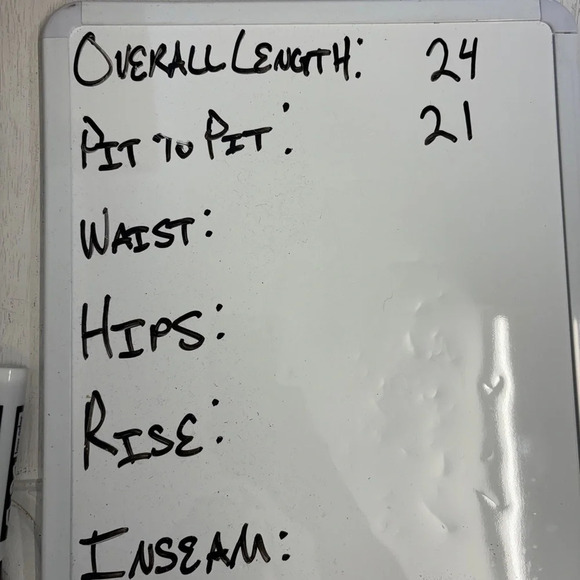 OVERALL LENGTH: 24
PIT TO PIT: 21
WAIST:
HIPS:
RISE:
INSEAM: